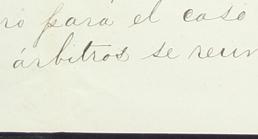 ro para el caso
árbitros se reun